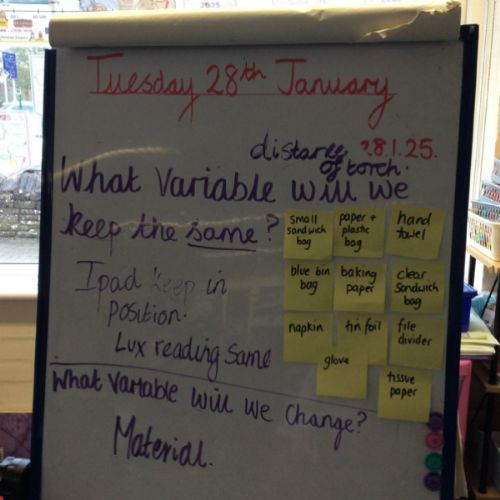 Tuesday 28th January
28.1.25.
distance
of torch.
What Variable will we
keep the same?
Ipad keep in
position.
Lux reading same
small
sandwich
bag
paper +
plastic
bag
hand
towel
blue bin
bag
baking
paper
clear
sandwich
bag
napkin
tin foil
file
divider
glove
tissue
paper
What Variable will we change?
Material.